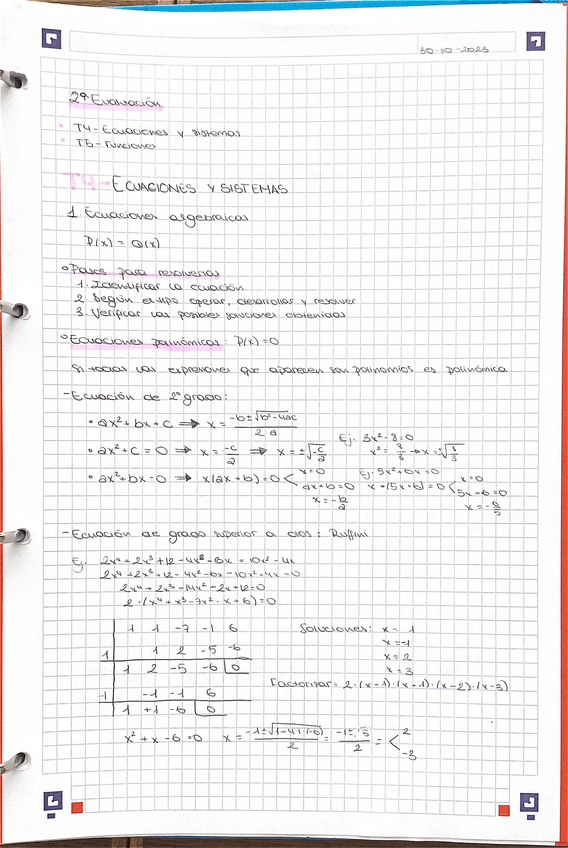 30-10-2023
2ª Evaluación
• T4-Ecuaciones y sistemas
• T5-Funciones
T4-ECUACIONES Y SISTEMAS
1. Ecuaciones algebraicas
P(x) = Q(x)
○ Pasos para resolverlas
1. Identificar la ecuación
2. Según el tipo operar, desarrollar y resolver
3. Verificar las posibles soluciones obtenidas
○ Ecuaciones polinómicas: P(x)=0
Si todas las expresiones que aparecen son polinomios es polinómica
- Ecuación de 2º grado:
• ax²+bx+c ⇒ x = -b±√b²-4ac / 2a
• ax²+c = 0 ⇒ x = -c/a ⇒ x = ±√-c/a
Ej. 3x²-8=0
x² = 8/3 → x=√8/3
• ax²+bx=0 ⇒ x(ax+b)=0 < x=0
ax+b=0
x=-b/a
Ej. 5x²+6x=0
x·(5x+6)=0 < x=0
5x+6=0
x=-6/5
- Ecuación de grado superior a dos: Ruffini
Ej. 2x⁴+2x³+12-4x²-6x = 10x²-4x
2x⁴+2x³+12-4x²-6x-10x²+4x=0
2x⁴+2x³-14x²-2x+12=0
2·(x⁴+x³-7x²-x+6)=0
1 1 -7 -1 6
1 1 2 -5 -6
1 2 -5 -6 0
-1 -1 -1 6
1 +1 -6 0
Soluciones: x= 1
x=-1
x=2
x=3
Factorizar= 2·(x-1)·(x+1)·(x-2)·(x-3)
x²+x-6=0 x = -1±√1-4·1·(-6) / 2 = -1± 5 / 2 = < 2
-3